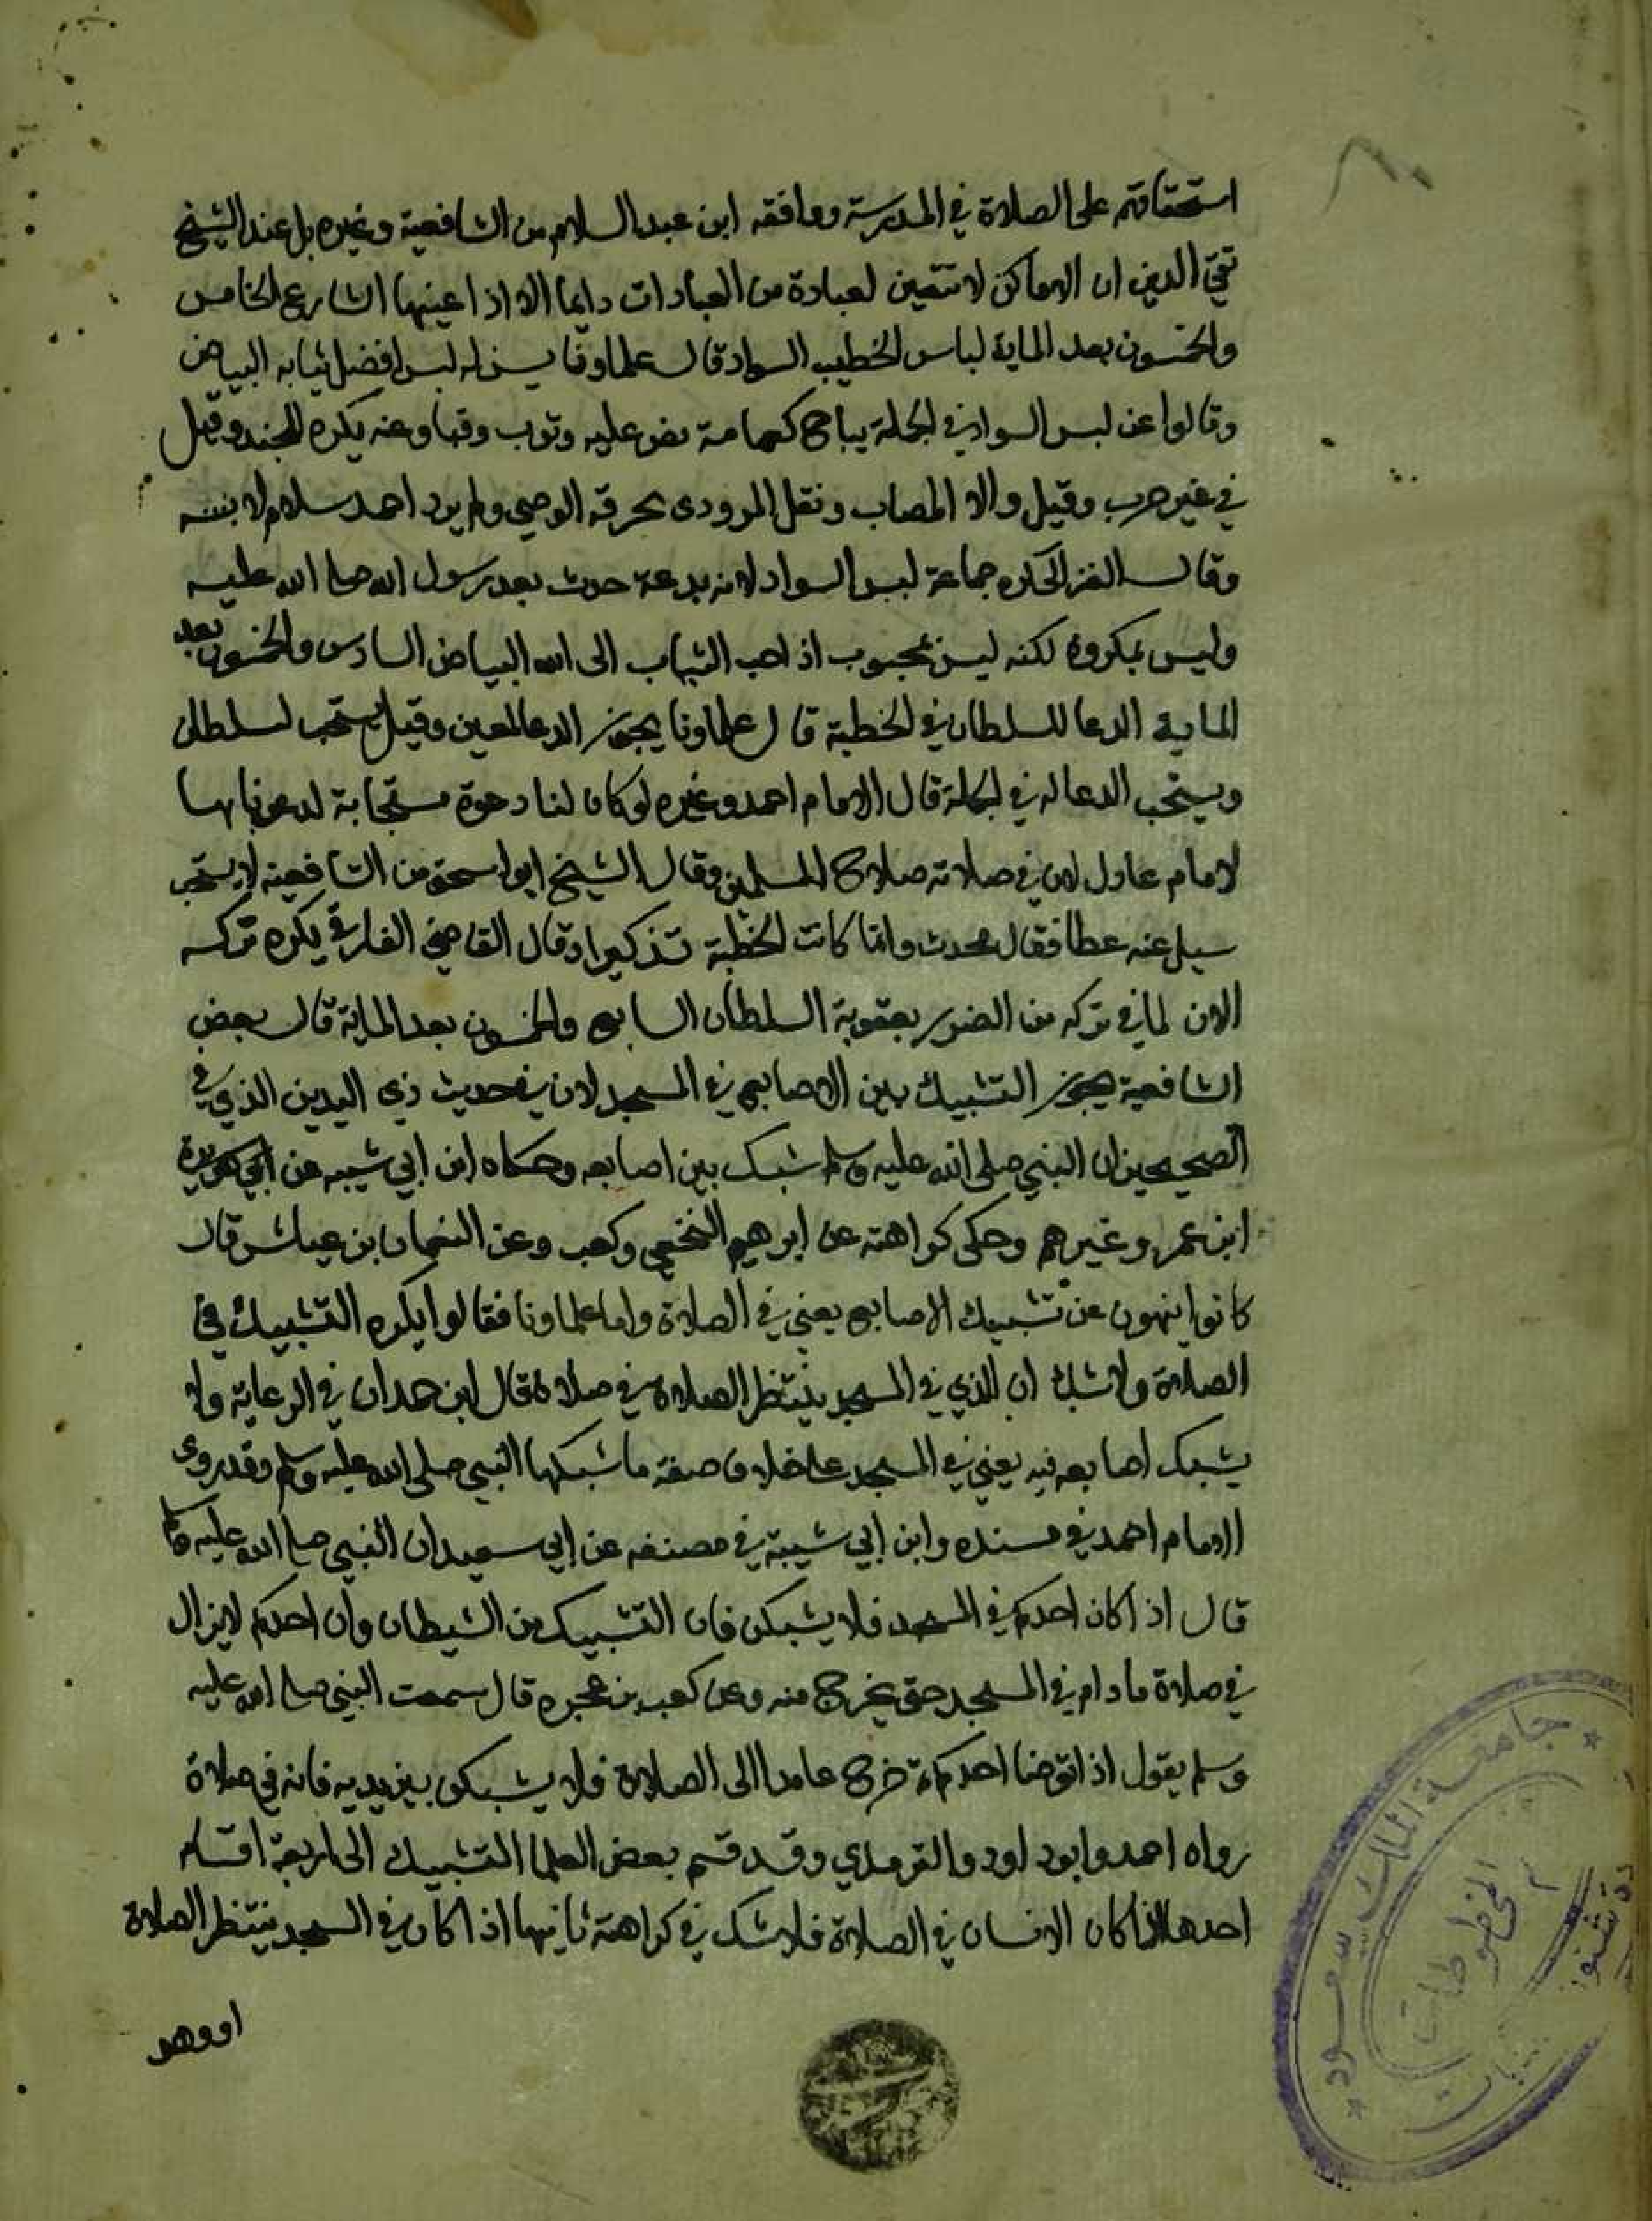 استحقاقهم على الصلاة في المدرسة ووافقه ابن عبد السلام من الشافعية وغيره بل عند الشيخ
تقي الدين ان الاماكن لا تتعين لعبادة من العبادات دايما الا اذا عينها الشارع الخامس
والخمسون بعد الماية لباس الخطيب السواد قال علماونا يسن له لبس افضل ثيابه البياض
وقالوا عن لبس السواد في الجملة يباح كعمامة نص عليه وثوب وقبا وعنه يكره للجند وقيل
في غير حرب وقيل والا المصاب ونقل المرودى يحرقه الوصي ولم يرد احمد سلام لابسه
وقال الغزالي كره جماعة لبس السواد لانه بدعة حدث بعد رسول الله صلى الله عليه
وليس بمكروه لكنه ليس بمحبوب اذ احب الثياب الى الله البياض السادس والخمسون بعد
الماية الدعا للسلطان في الخطبة قال علماونا يجوز الدعا لمعين وقيل يستحب لسلطان
ويستحب الدعا له في الجملة قال الامام احمد وغيره لو كان لنا دعوة مستجابة لدعونا بها
لامام عادل لان في صلاته صلاح المسلمين وقال الشيخ ابو اسحق من الشافعية لا يستحب
سيل عنه عطا فقال محدث وانما كانت الخطبة تذكيرا وقال القاضي الفارقي يكره تركه
الان لما في تركه من الضرر بعقوبة السلطان السابع والخمسون بعد الماية قال بعض
الشافعية يجوز التشبيك بين الاصابع في المسجد لان في حديث ذي اليدين الذي في
الصحيحين ان النبي صلى الله عليه وسلم شبك بين اصابعه وحكاه ابن ابي شيبه عن ابي هريرة
ابن عمر وغيرهم وحكى كراهته عن ابرهيم النخعي وكعب وعن النعمان بن عياش قال
كانوا ينهون عن تشبيك الاصابع يعني في الصلاة واما علماونا فقالوا يكره التشبيك في
الصلاة ولا شك ان الذي في المسجد ينتظر الصلاة في صلاة قال ابن حمدان في الرعاية ولا
يشبك اصابعه فيه يعني في المسجد على خلاف صفة ما شبكها النبي صلى الله عليه وسلم وقد روى
الامام احمد في مسنده وابن ابي شيبة في مصنفه عن ابي سعيد ان النبي صلى الله عليه وسلم
قال اذا كان احدكم في المسجد فلا يشبكن فان التشبيك من الشيطان وان احدكم لا يزال
في صلاة ما دام في المسجد حتى يخرج منه وعن كعب بن عجره قال سمعت النبي صلى الله عليه
وسلم يقول اذا توضا احدكم ثم خرج عامدا الى الصلاة فلا يشبكن بين يديه فانه في صلاة
رواه احمد وابو داود والترمذي وقد قسم بعض العلما التشبيك الى اربعة اقسام
احدها اذا كان الانسان في الصلاة فلا شك في كراهته ثانيها اذا كان في المسجد ينتظر الصلاة
او وهو
جامعة الملك سعود
المخطوطات